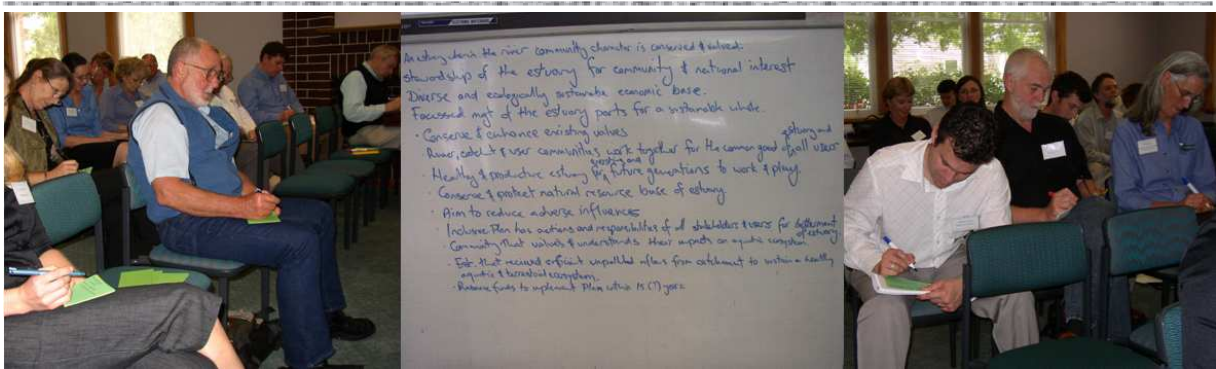 An estuary where the river community character is conserved & valued.
stewardship of the estuary for community & national interest
Diverse and ecologically sustainable economic base.
Focussed mgt of the estuary parts for a sustainable whole.
· Conserve & enhance existing values
estuary and
· River, catch't & user communities work together for the common good of all users
existing and
· Healthy & productive estuary for future generations to work & play.
· Conserve & protect natural resource base of estuary
· Aim to reduce adverse influences
Inclusive Plan has actions and responsibilities of all stakeholders & users for betterment
of estuary
· Community that values & understands their impacts on aquatic ecosystem
· Est. that received unpolluted inflows from catchment to sustain a healthy
aquatic & terrestrial ecosystem.
· Resource funds to implement Plan within 15 (?) years